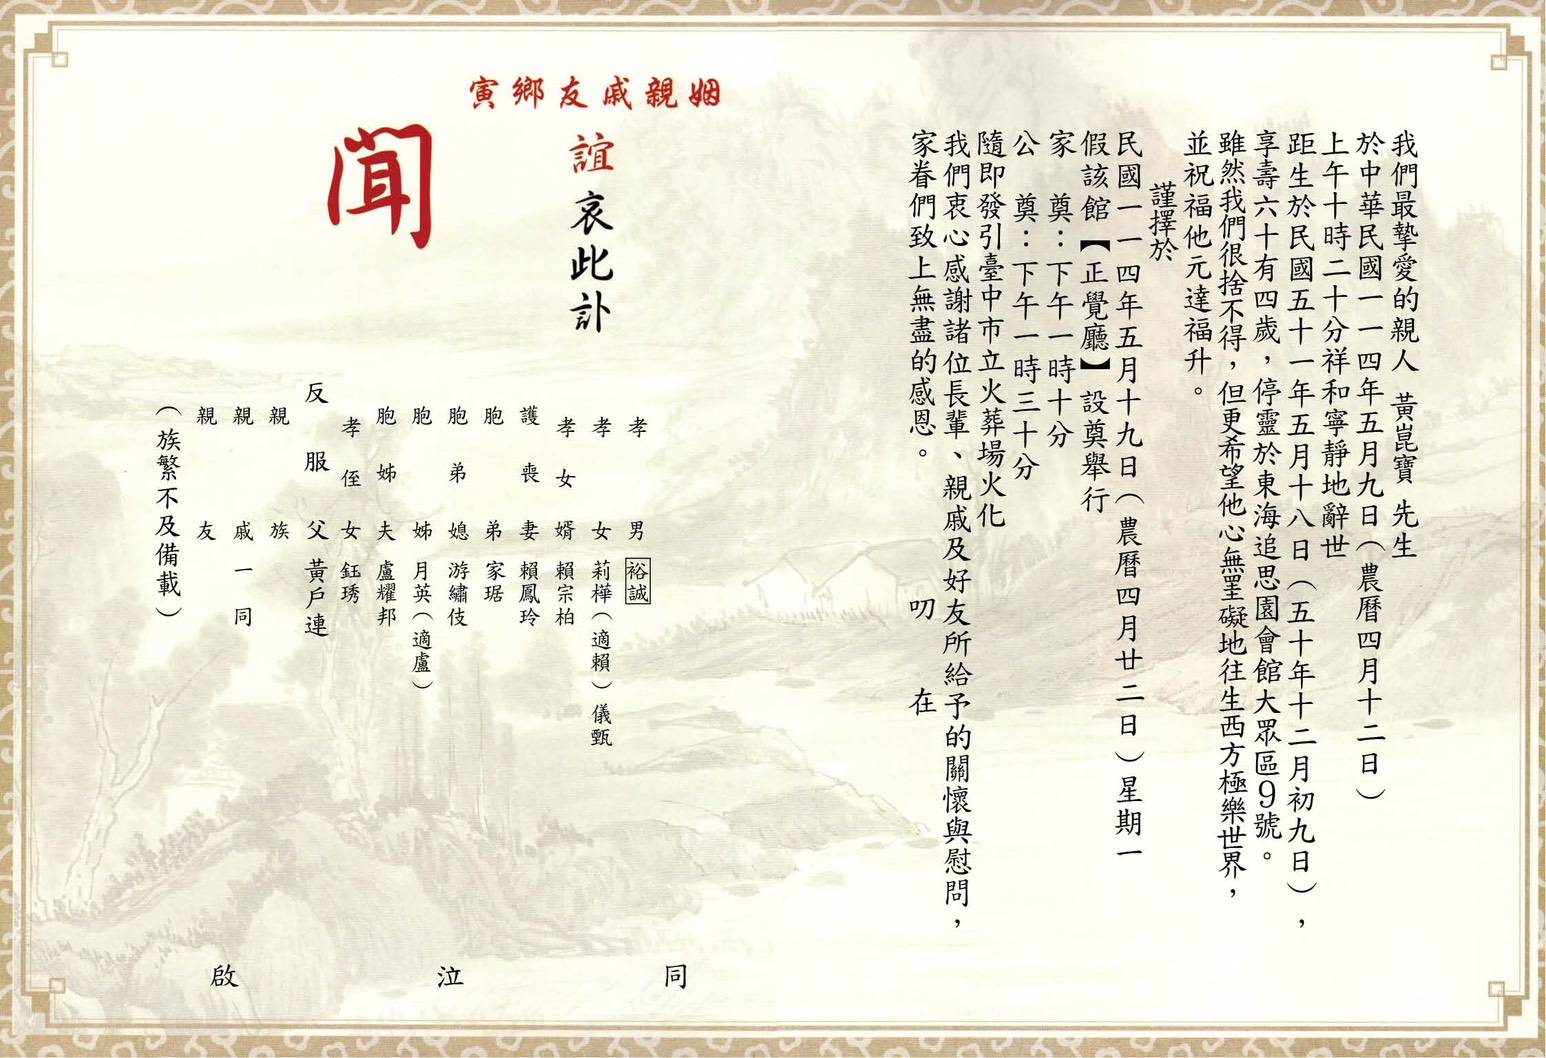 我們最摯愛的親人 黃崑寶 先生
於中華民國一一四年五月九日（農曆四月十二日）
上午十時二十分祥和寧靜地辭世
距生於民國五十一年五月十八日（五十年十二月初九日），
享壽六十有四歲，停靈於東海追思園會館大眾區9號。
雖然我們很捨不得，但更希望他心無罣礙地往生西方極樂世界，
並祝福他元達福升。
謹擇於
民國一一四年五月十九日（農曆四月廿二日）星期一
假該館【正覺廳】設奠舉行
家 奠：下午一時十分
公 奠：下午一時三十分
隨即發引臺中市立火葬場火化
我們衷心感謝諸位長輩、親戚及好友所給予的關懷與慰問，
家眷們致上無盡的感恩。 叨 在
姻親戚友鄉寅
誼哀此訃
聞
孝男 裕誠
孝女 莉樺（適賴）儀甄
孝女婿 賴宗柏
護喪妻 賴鳳玲
胞弟 家琚
胞弟媳 游繡伎
胞姊 月英（適盧）
胞姊夫 盧耀邦
孝侄女 鈺琇
反服父 黃戶連
親族
親戚一同
親友
（族繁不及備載）
同泣啟